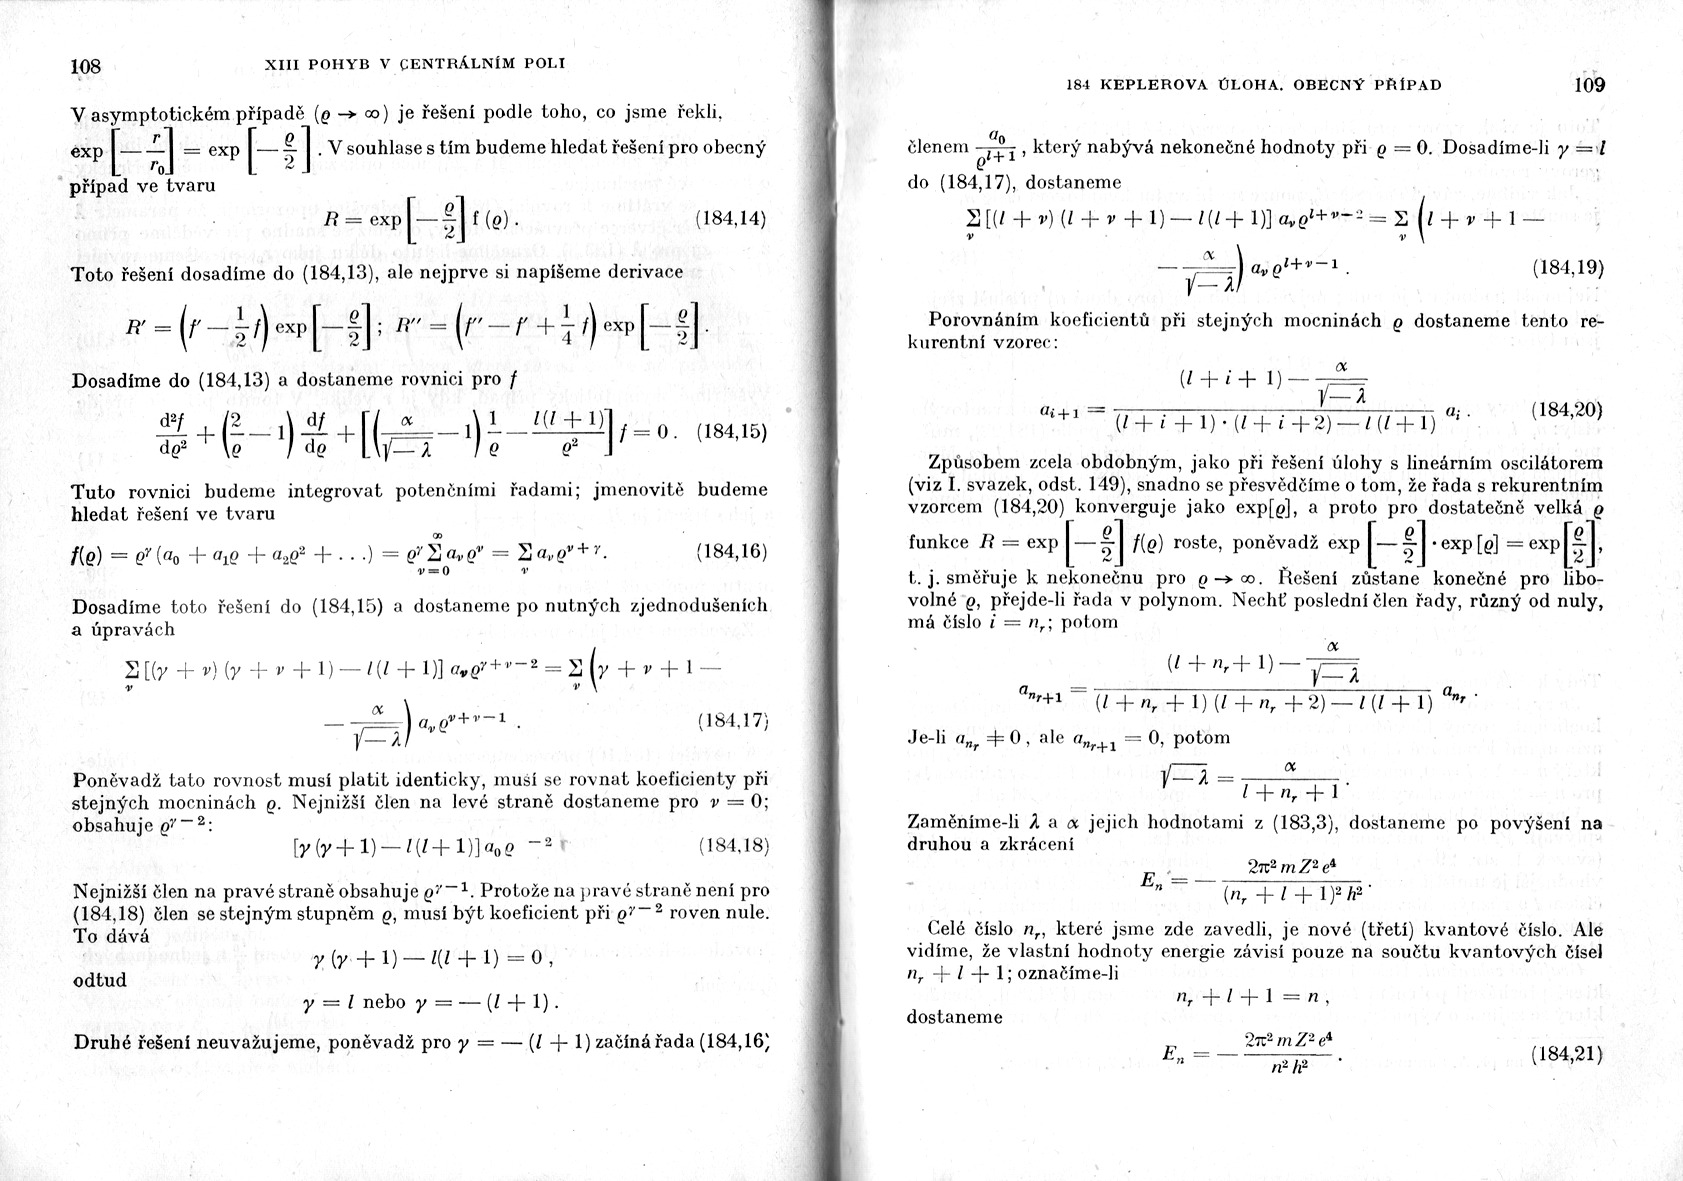 108 XIII POHYB V CENTRÁLNÍM POLI
V asymptotickém případě (ϱ → ∞) je řešení podle toho, co jsme řekli,
exp [— r/r₀] = exp [— ϱ/2] . V souhlase s tím budeme hledat řešení pro obecný
případ ve tvaru
R = exp [— ϱ/2] f (ϱ) . (184,14)
Toto řešení dosadíme do (184,13), ale nejprve si napíšeme derivace
R′ = (f′ — 1/2 f) exp [— ϱ/2] ; R″ = (f″ — f′ + 1/4 f) exp [— ϱ/2] .
Dosadíme do (184,13) a dostaneme rovnici pro f
d²f/dϱ² + (2/ϱ — 1) df/dϱ + [(α/√—λ — 1) 1/ϱ — l(l + 1)/ϱ²] f = 0 . (184,15)
Tuto rovnici budeme integrovat potenčními řadami; jmenovitě budeme
hledat řešení ve tvaru
f(ϱ) = ϱ^γ (a₀ + a₁ϱ + a₂ϱ² + . . .) = ϱ^γ Σ_{ν=0}^{∞} a_ν ϱ^ν = Σ_ν a_ν ϱ^{ν + γ}. (184,16)
Dosadíme toto řešení do (184,15) a dostaneme po nutných zjednodušeních
a úpravách
Σ_ν [(γ + ν) (γ + ν + 1) — l(l + 1)] a_ν ϱ^{γ+ν—2} = Σ_ν (γ + ν + 1 —
— α/√—λ) a_ν ϱ^{ν+ν—1} . (184,17)
Poněvadž tato rovnost musí platit identicky, musí se rovnat koeficienty při
stejných mocninách ϱ. Nejnižší člen na levé straně dostaneme pro ν = 0;
obsahuje ϱ^{γ—2}:
[γ (γ + 1) — l(l + 1)] a₀ ϱ ^{—2} (184,18)
Nejnižší člen na pravé straně obsahuje ϱ^{γ—1}. Protože na pravé straně není pro
(184,18) člen se stejným stupněm ϱ, musí být koeficient při ϱ^{γ—2} roven nule.
To dává
γ (γ + 1) — l(l + 1) = 0 ,
odtud
γ = l nebo γ = — (l + 1) .
Druhé řešení neuvažujeme, poněvadž pro γ = — (l + 1) začíná řada (184,16)
184 KEPLEROVA ÚLOHA. OBECNÝ PŘÍPAD 109
členem a₀/ϱ^{l+1} , který nabývá nekonečné hodnoty při ϱ = 0. Dosadíme-li γ = l
do (184,17), dostaneme
Σ_ν [(l + ν) (l + ν + 1) — l(l + 1)] a_ν ϱ^{l+ν—2} = Σ_ν (l + ν + 1 —
— α/√—λ) a_ν ϱ^{l+ν—1} . (184,19)
Porovnáním koeficientů při stejných mocninách ϱ dostaneme tento re-
kurentní vzorec:
a_{i+1} = ((l + i + 1) — α/√—λ) / ((l + i + 1) · (l + i + 2) — l (l + 1)) a_i . (184,20)
Způsobem zcela obdobným, jako při řešení úlohy s lineárním oscilátorem
(viz I. svazek, odst. 149), snadno se přesvědčíme o tom, že řada s rekurentním
vzorcem (184,20) konverguje jako exp[ϱ], a proto pro dostatečně velká ϱ
funkce R = exp [— ϱ/2] f(ϱ) roste, poněvadž exp [— ϱ/2] · exp [ϱ] = exp [ϱ/2],
t. j. směřuje k nekonečnu pro ϱ → ∞. Řešení zůstane konečné pro libo-
volné ϱ, přejde-li řada v polynom. Nechť poslední člen řady, různý od nuly,
má číslo i = n_r; potom
a_{n_r+1} = ((l + n_r + 1) — α/√—λ) / ((l + n_r + 1) (l + n_r + 2) — l (l + 1)) a_{n_r} .
Je-li a_{n_r} ≠ 0 , ale a_{n_r+1} = 0, potom
√—λ = α/(l + n_r + 1) .
Zaměníme-li λ a α jejich hodnotami z (183,3), dostaneme po povýšení na
druhou a zkrácení
E_n = — 2π² m Z² e⁴/((n_r + l + 1)² h²) .
Celé číslo n_r, které jsme zde zavedli, je nové (třetí) kvantové číslo. Ale
vidíme, že vlastní hodnoty energie závisí pouze na součtu kvantových čísel
n_r + l + 1; označíme-li
n_r + l + 1 = n ,
dostaneme
E_n = — 2π² m Z² e⁴/(n² h²) . (184,21)